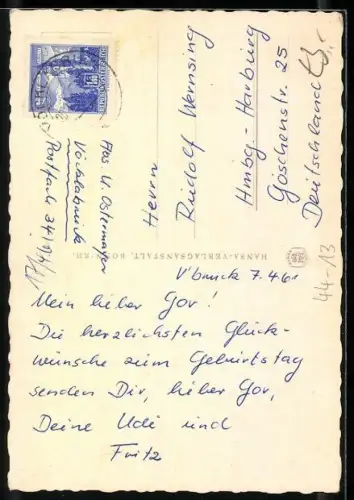 Abs. U. Ostermayer
Vöcklabruck
Postfach 34
Herrn
Rudolf Wernsing
Hmbg-Harburg
Göschenstr. 25
Deutschland
HANSA-VERLAGSANSTALT
44-13
V'bruck 7.4.61
Mein lieber Gov!
Die herzlichsten Glück-
wünsche zum Geburtstag
senden Dir, lieber Gov,
Deine Udi und
Fritz